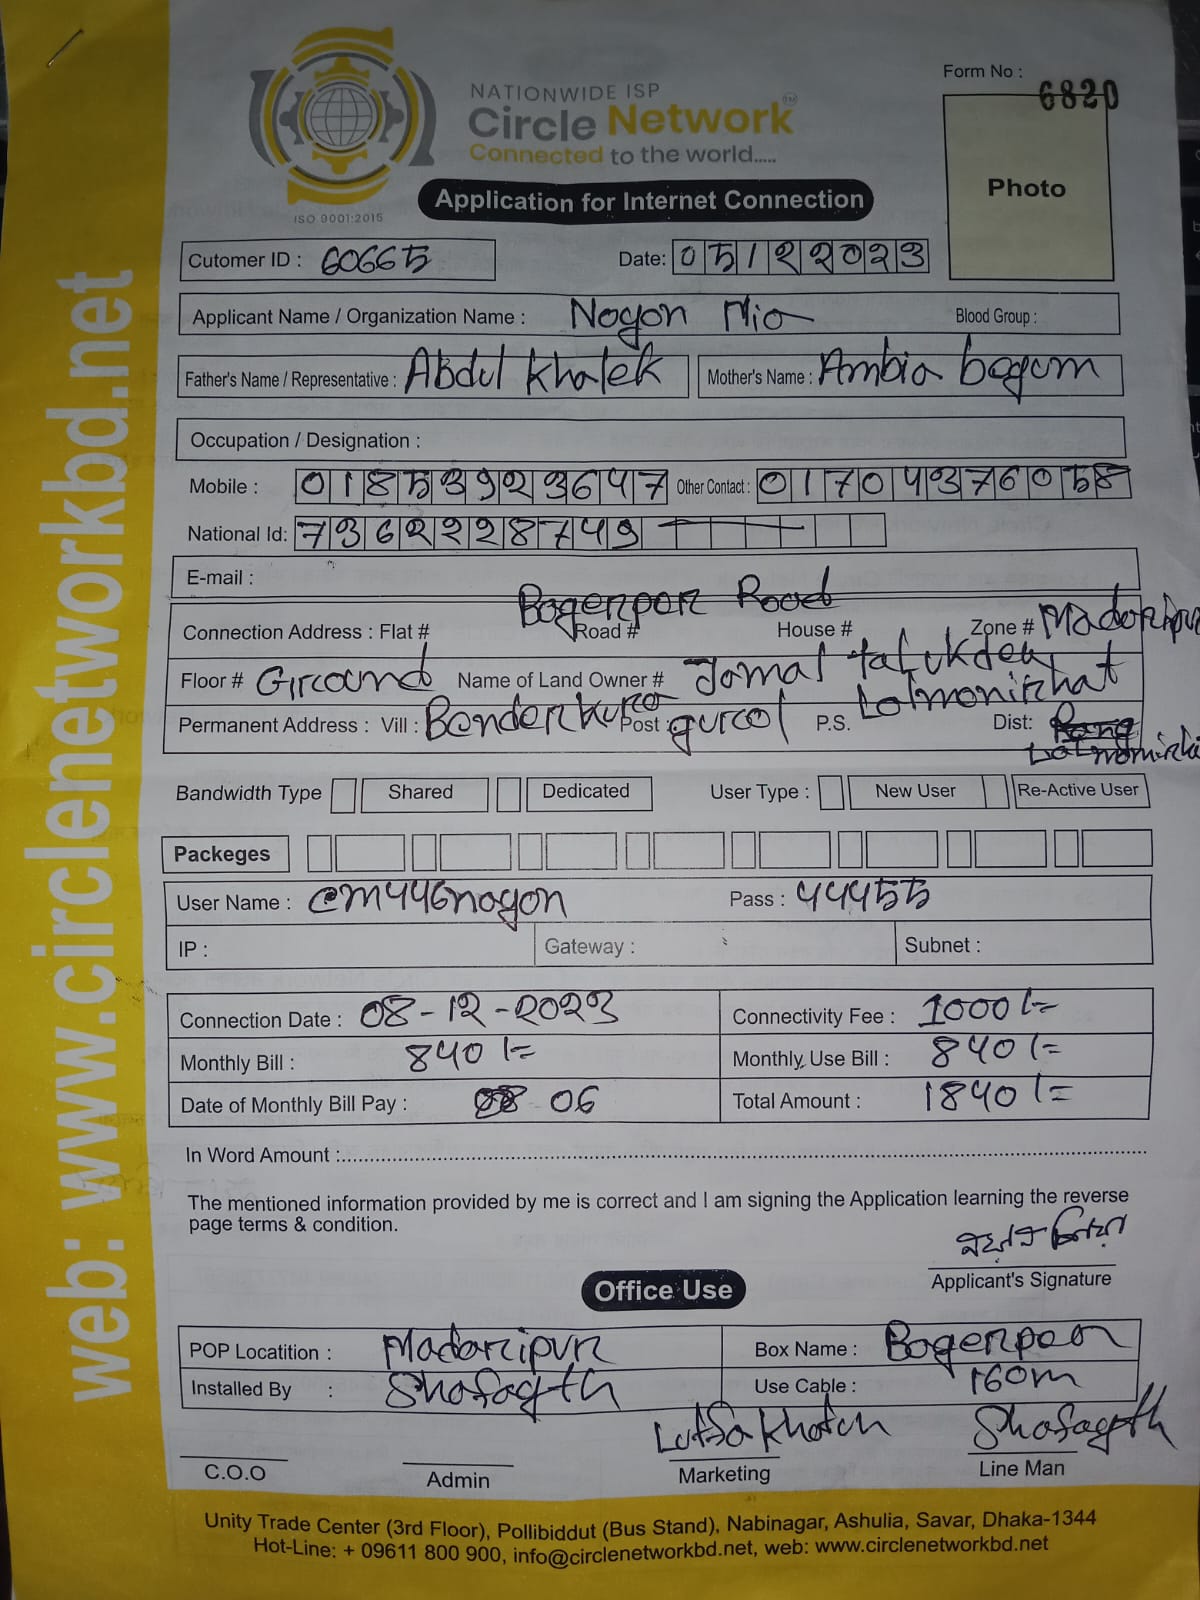 web: www.circlenetworkbd.net
NATIONWIDE ISP
Circle Network TM
Connected to the world.....
ISO 9001:2015
Application for Internet Connection
Form No : 6820
Photo
Cutomer ID : 60665
Date: 05122023
Applicant Name / Organization Name : Noyon Mia Blood Group :
Father's Name / Representative : Abdul Khalek Mother's Name : Ambia begum
Occupation / Designation :
Mobile : 01853923647 Other Contact : 01704376058
National Id: 7362228749
E-mail :
Connection Address : Flat # Bagerpar Road Road # House # Zone # Madaripur
Floor # Ground Name of Land Owner # Jamal talukder
Permanent Address : Vill : Banderkura Post : gurol P.S. Lalmonirhat Dist:
Bandwidth Type Shared Dedicated User Type : New User Re-Active User
Packeges
User Name : cm446noyon Pass : 44455
IP : Gateway : Subnet :
Connection Date : 08-12-2023 Connectivity Fee : 1000/=
Monthly Bill : 840/= Monthly Use Bill : 840/=
Date of Monthly Bill Pay : 06 Total Amount : 1840/=
In Word Amount :
The mentioned information provided by me is correct and I am signing the Application learning the reverse
page terms & condition.
নয়ন মিয়া
Applicant's Signature
Office Use
POP Locatition : Madaripur Box Name : Bagerpar
Installed By : Shafayth Use Cable : 160m
Lutfa Khatun Shafayth
C.O.O Admin Marketing Line Man
Unity Trade Center (3rd Floor), Pollibiddut (Bus Stand), Nabinagar, Ashulia, Savar, Dhaka-1344
Hot-Line: + 09611 800 900, info@circlenetworkbd.net, web: www.circlenetworkbd.net